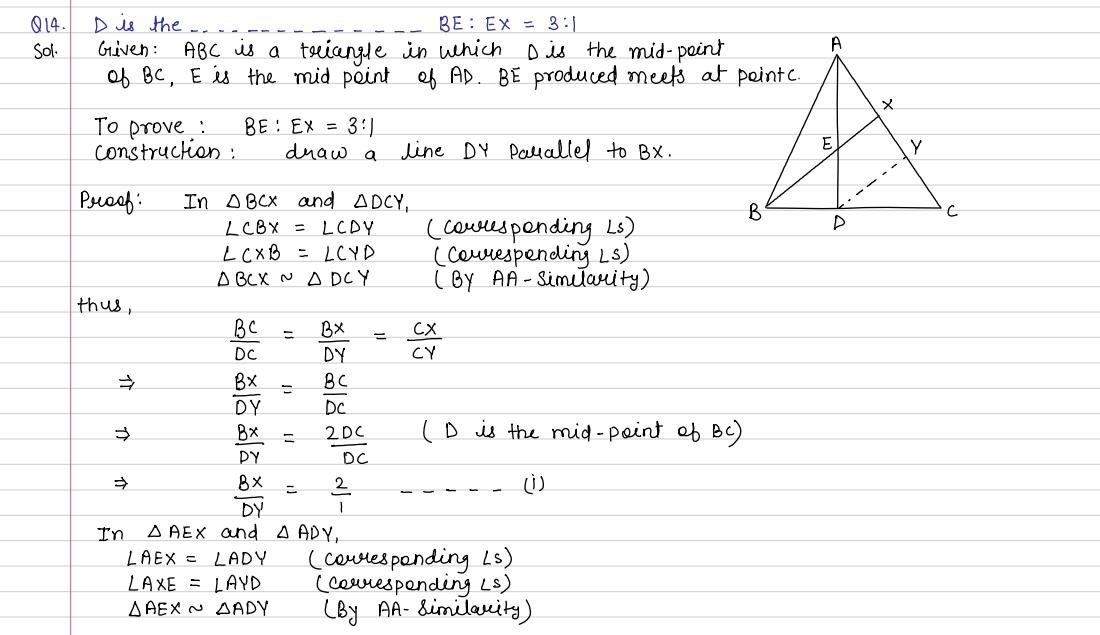 Q14. D is the _ _ _ _ _ _ _ _ _ _ _ _ _ _ BE : EX = 3:1
Sol. Given: ABC is a triangle in which D is the mid-point
of BC, E is the mid point of AD. BE produced meets at point C.
To prove : BE : EX = 3:1
Construction : draw a line DY Parallel to BX.
Proof: In △BCX and △DCY,
∠CBX = ∠CDY (Corresponding ∠s)
∠CXB = ∠CYD (Corresponding ∠s)
△BCX ~ △DCY (By AA-Similarity)
thus,
BC/DC = BX/DY = CX/CY
⇒ BX/DY = BC/DC
⇒ BX/DY = 2DC/DC ( D is the mid-point of BC)
⇒ BX/DY = 2/1 _ _ _ _ _ (i)
In △AEX and △ADY,
∠AEX = ∠ADY (Corresponding ∠s)
∠AXE = ∠AYD (Corresponding ∠s)
△AEX ~ △ADY (By AA-Similarity)
A
X
E
Y
B
D
C